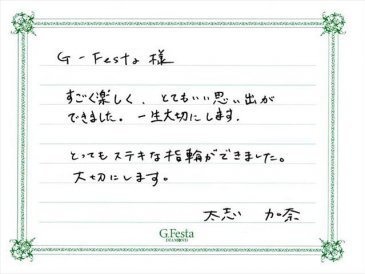 G-Festa 様
すごく楽しく、とてもいい思い出が
できました。一生大切にします。
とってもステキな指輪ができました。
大切にします。
太志 加奈
G.Festa
DIAMOND